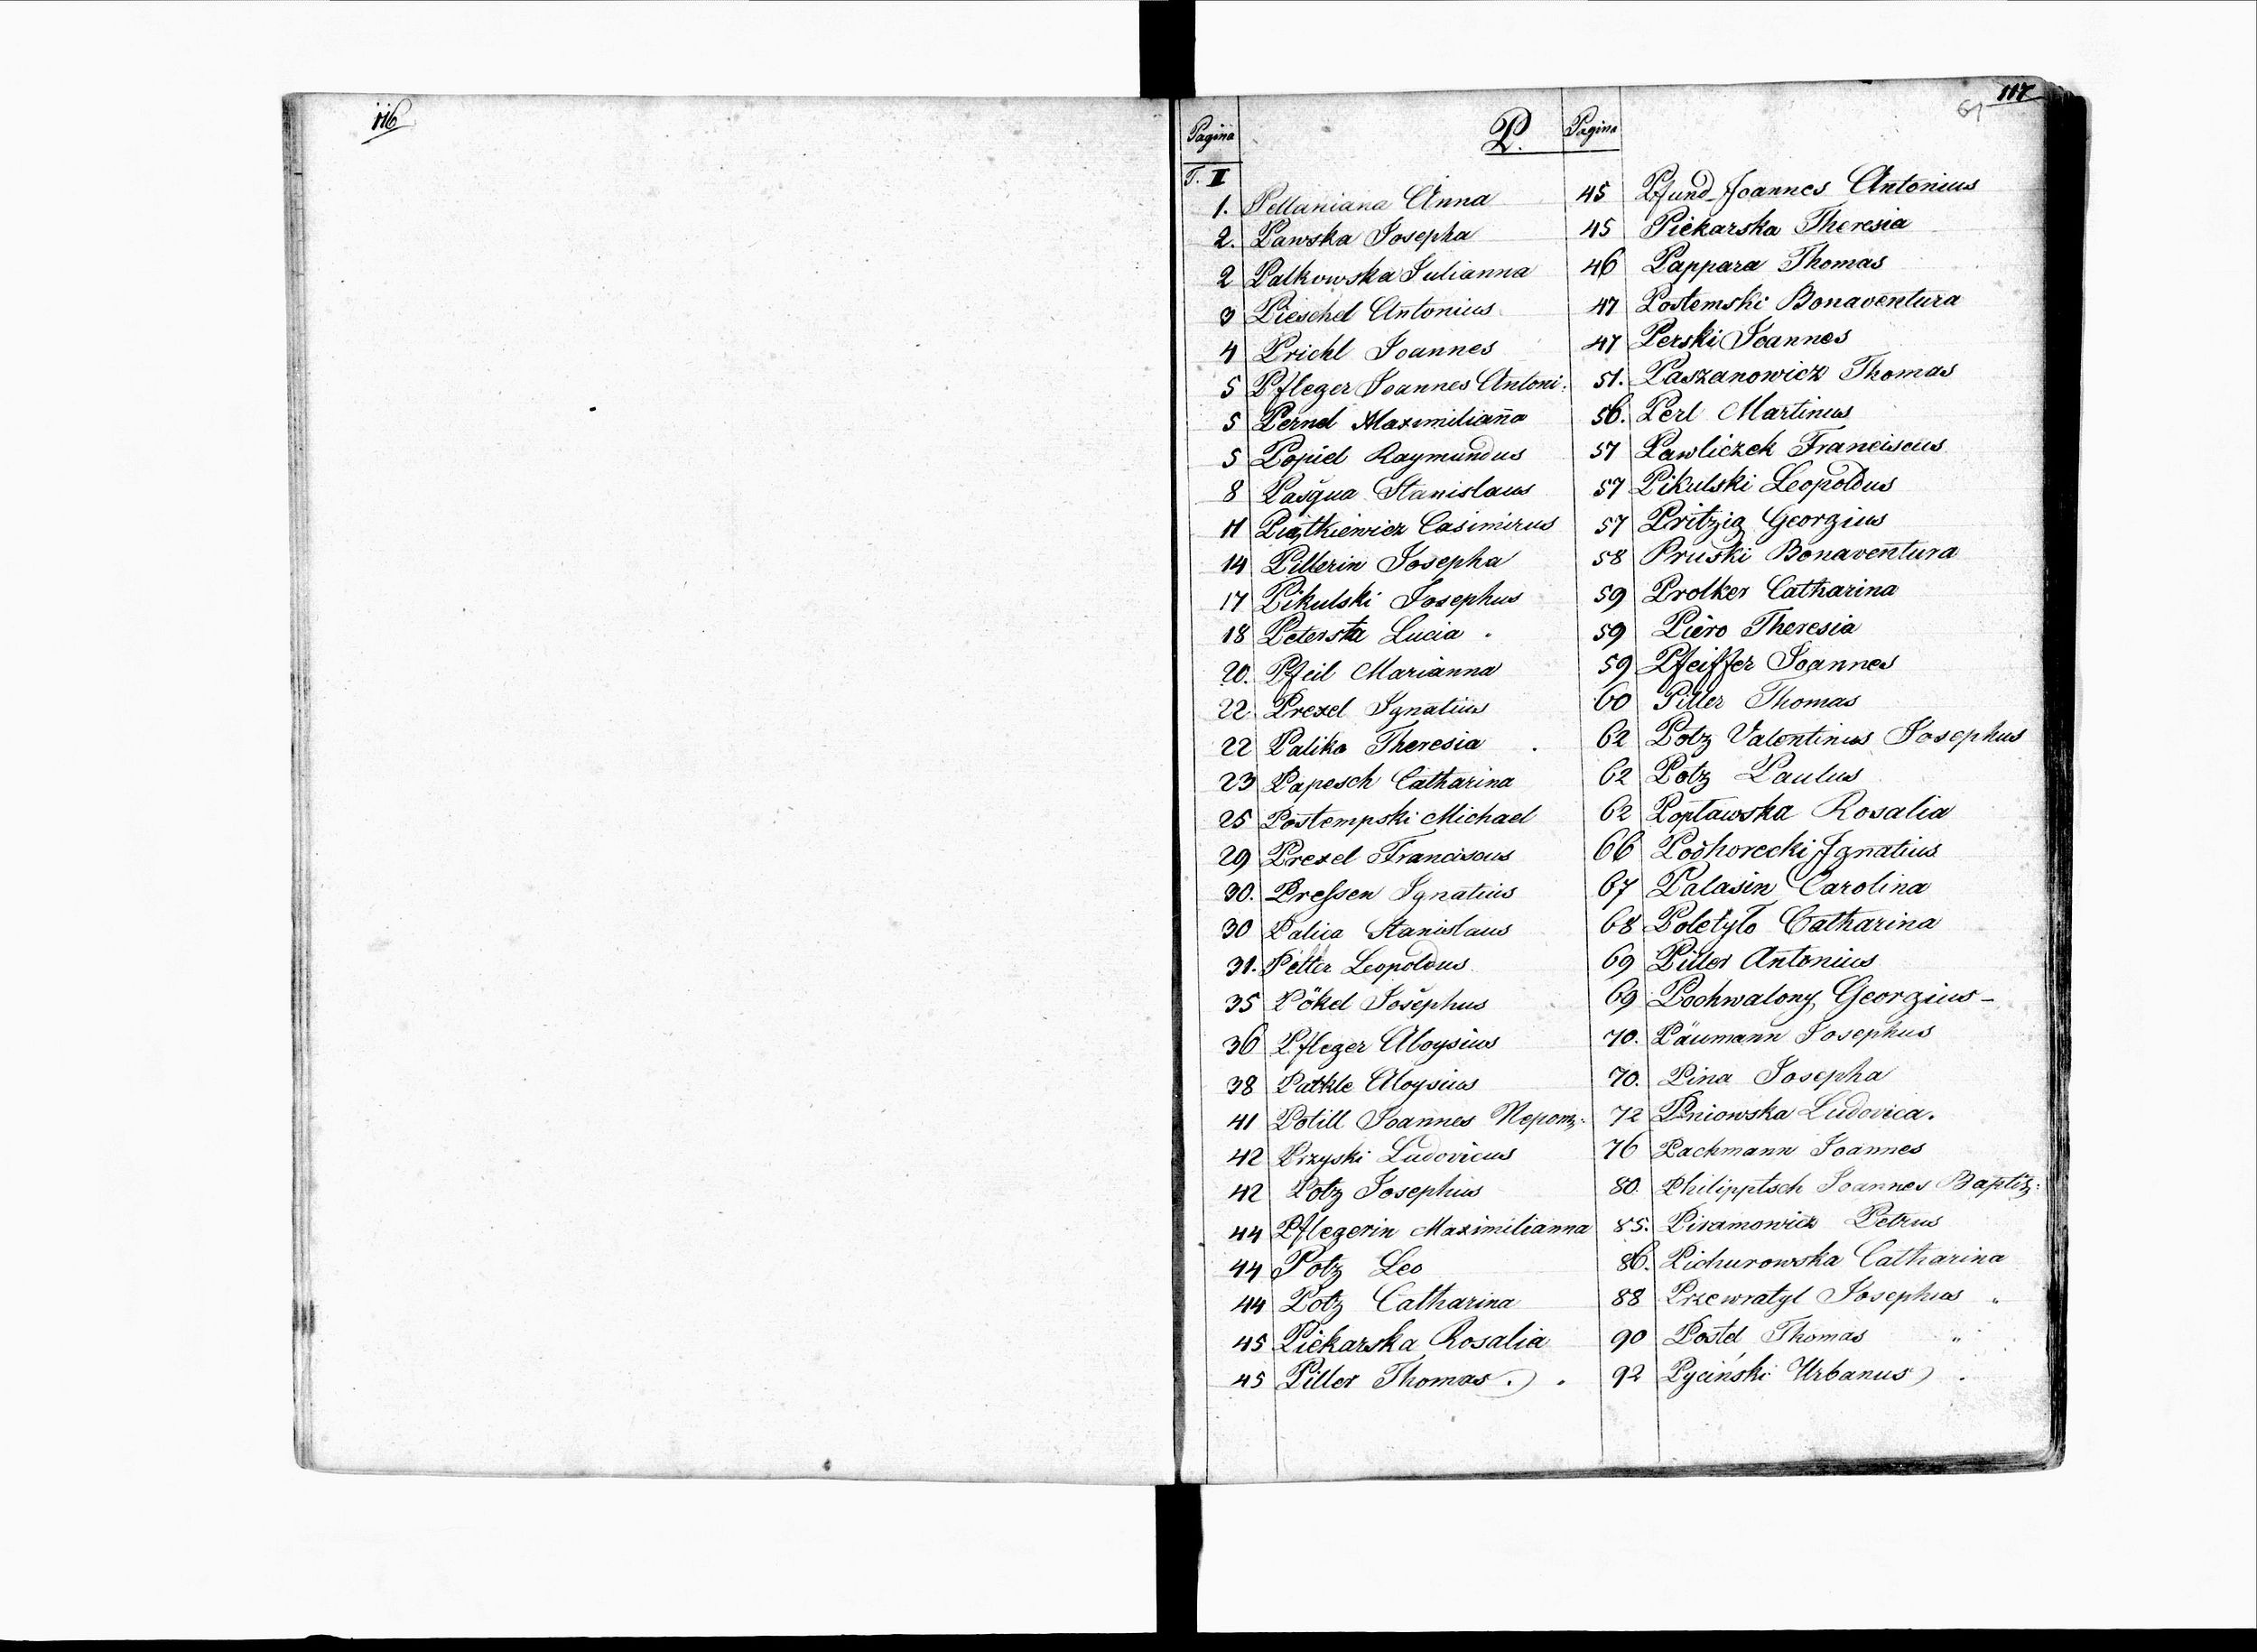 116
117
61
Pagina
P.
Pagina
T. II
1. Pellaniana Anna
2. Pawska Josepha
2 Palkowska Julianna
3 Pieschel Antonius
4 Prichl Joannes
5 Pfleger Joannes Antoni:
5 Pernel Maximilian̄a
5 Popiel Raymundus
8 Pasqua Stanislaus
11 Piątkiewicz Casimirus
14 Pillerin Josepha
17 Pikulski Josephus
18 Peterska Lucia
20. Pfeil Marianna
22 Prexel Ignatius
22 Palika Theresia
23 Papesch Catharina
25 Postempski Michael
29 Prexel Franciscus
30. Pressen Ignatius
30 Palica Stanislaus
31. Petter Leopoldus
35 Pökel Josephus
36 Pfleger Aloysius
38 Patkle Aloysius
41 Potill Joannes Nepom:
42 Przyski Ludovicus
42 Potz Josephus
44 Pflegerin Maximilianna
44 Potz Leo
44 Potz Catharina
45 Piekarska Rosalia
45 Piller Thomas.
45 Pfund Joannes Antonius
45 Piekarska Theresia
46 Pappara Thomas
47 Postemski Bonaventura
47 Perski Joannes
51. Paszanowicz Thomas
56. Perl Martinus
57 Pawliczek Franciscus
57 Pikulski Leopoldus
57 Pritzig Georgius
58 Pruski Bonaventura
59 Prolker Catharina
59 Piero Theresia
59 Pfeiffer Joannes
60 Piller Thomas
62 Potz Valentinus Josephus
62 Potz Paulus
62 Popławska Rosalia
66 Podhorecki Ignatius
67 Palasin Carolina
68 Poletyło Catharina
69 Piller Antonius
69 Pochwalony Georgius
70. Päumann Josephus
70. Pina Josepha
72 Pniowska Ludovica.
76 Pachmann Joannes
80. Philipptsch Joannes Baptis:
85. Piramowicz Petrus
86. Pichurowska Catharina
88 Przewratyl Josephus
90 Postel Thomas
92 Pyciński Urbanus